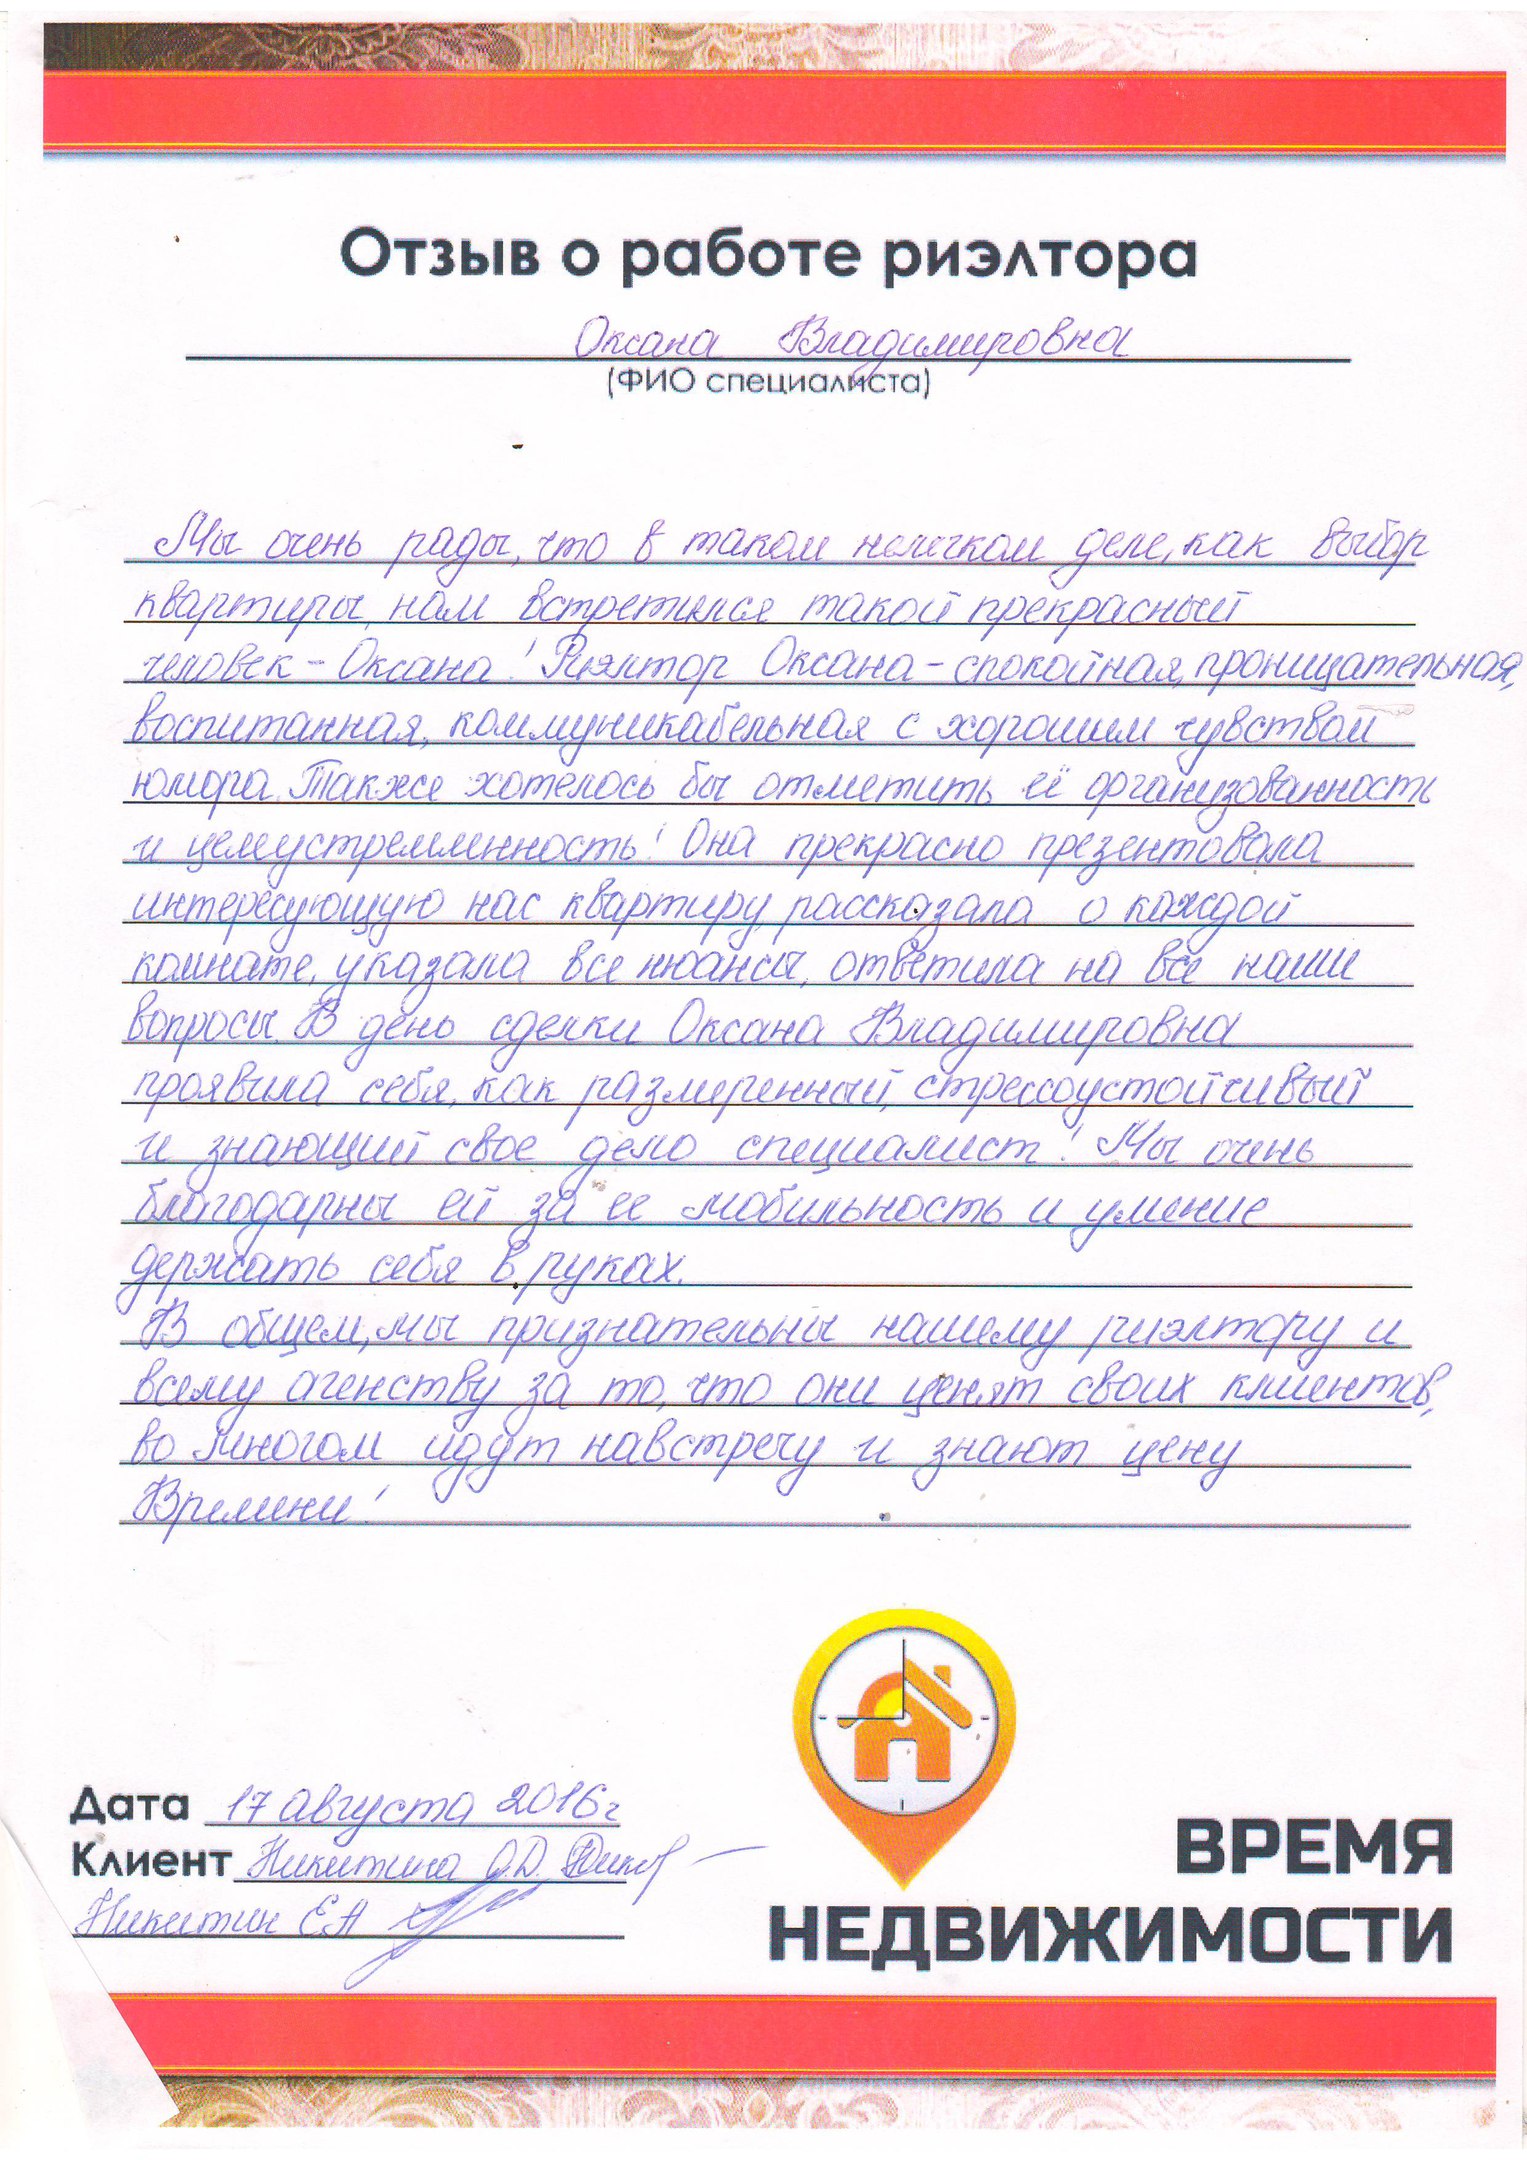 Отзыв о работе риэлтора
Оксана Владимировна
(ФИО специалиста)
Мы очень рады, что в таком нелегком деле, как выбор
квартиры, нам встретился такой прекрасный
человек - Оксана! Риэлтор Оксана - спокойная, проницательная,
воспитанная, коммуникабельная с хорошим чувством
юмора. Также хотелось бы отметить её организованность
и целеустремленность! Она прекрасно презентовала
интересующую нас квартиру, рассказала о каждой
комнате, указала все нюансы, ответила на все наши
вопросы. В день сделки Оксана Владимировна
проявила себя, как размеренный, стрессоустойчивый
и знающий свое дело специалист! Мы очень
благодарны ей за ее мобильность и умение
держать себя в руках.
В общем, мы признательны нашему риэлтору и
всему агенству за то, что они ценят своих клиентов,
во многом идут навстречу и знают цену
Времени!
Дата 17 августа 2016г
Клиент Никитина О.Д.
Никитин Е.А
ВРЕМЯ
НЕДВИЖИМОСТИ